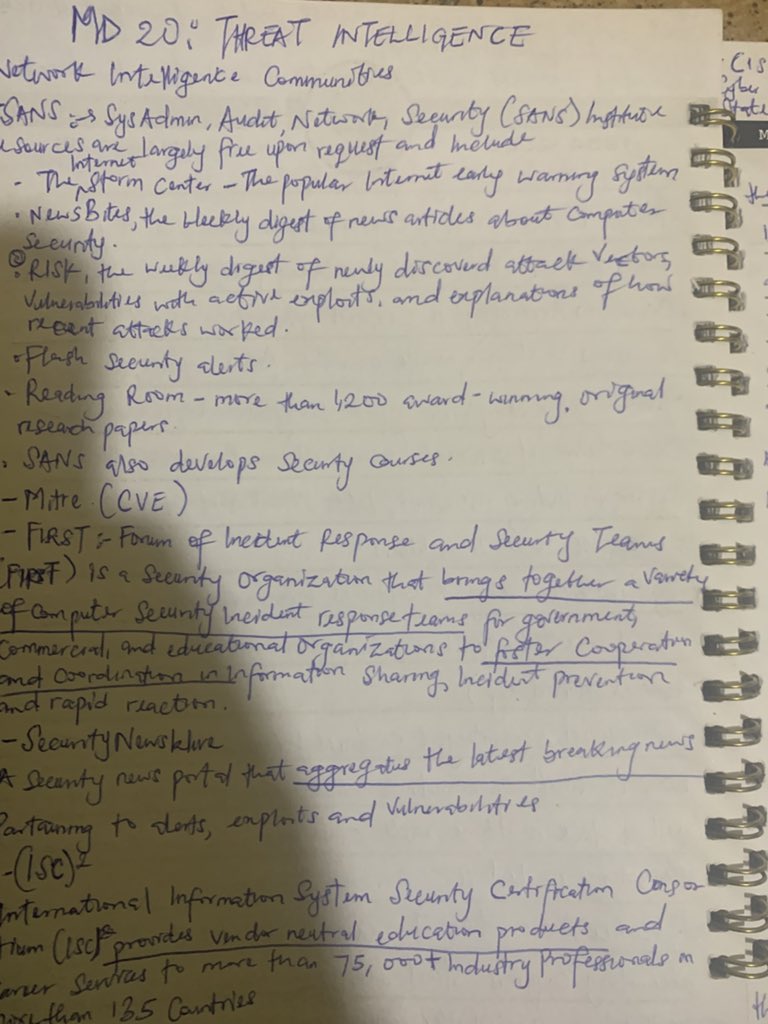 MD 20: THREAT INTELLIGENCE
Network Intelligence Communities
SANS :→ SysAdmin, Audit, Network, Security (SANS) Institute
esources are largely free upon request and Include
- The Internet Storm Center - The popular Internet early warning system
• NewsBites, the Weekly digest of news articles about Computer
Security.
@RISK, the weekly digest of newly discoverd attack vectors,
Vulnerabilities with active exploits, and explanations of how
recent attacks worked.
• Flash security alerts.
• Reading Room - more than 1,200 award-winning, original
research papers.
• SANS also develops Security courses.
- Mitre (CVE)
- FIRST :- Forum of Incident Response and Security Teams
(FIRST) is a Security organization that brings together a variety
of Computer Security Incident response teams for government,
Commercial, and educational organizations to foster Cooperation
and coordination in Information Sharing, Incident prevention
and rapid reaction.
- Security
A security news portal that aggregates the latest breaking news
Partaining to alerts, exploits and vulnerabilities
- (ISC)²
International Information System Security Certification Consor
tium (ISC)² provides vendor neutral education products and
career services to more than 75,000+ Industry Professionals in
more than 135 Countries
CIS
yber
State
M
th